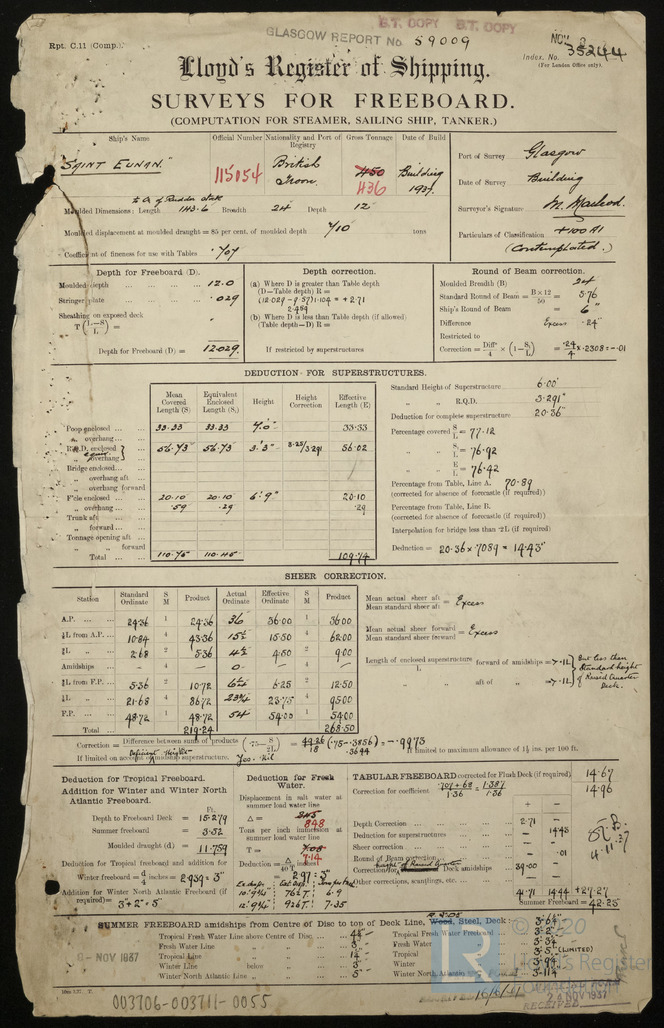 Rpt. C.11 (Comp.).
B.T. COPY B.T. COPY
GLASGOW REPORT No. 59009
NOV
Index. No. 35244
(For London Office only).
Lloyd's Register of Shipping.
SURVEYS FOR FREEBOARD.
(COMPUTATION FOR STEAMER, SAILING SHIP, TANKER.)
Ship's Name Official Number Nationality and Port of Registry Gross Tonnage Date of Build
"SAINT EUNAN." 115154 British Troon. 450 436 Building 1937.
Port of Survey Glasgow
Date of Survey Building
Surveyor's Signature M. Macleod.
Particulars of Classification +100 A1
(Contemplated.)
to ℄ of Rudder stock
Moulded Dimensions: Length 143.6 Breadth 24 Depth 12
Moulded displacement at moulded draught = 85 per cent. of moulded depth 710 tons
Coefficient of fineness for use with Tables .707
Depth for Freeboard (D).
Moulded depth ... 12.0
Stringer plate ... .029
Sheathing on exposed deck
T (L−S / L) =
Depth for Freeboard (D) = 12.029
Depth correction.
(a) Where D is greater than Table depth
(D−Table depth) R =
(12.029 − 9.57) 1.104 = + 2.71
2.459
(b) Where D is less than Table depth (if allowed)
(Table depth−D) R =
If restricted by superstructures
Round of Beam correction.
Moulded Breadth (B) 24
Standard Round of Beam = B×12 / 50 = 5.76
Ship's Round of Beam = 6"
Difference Excess .24"
Restricted to
Correction = Diff / 4 × (1 − S₁ / L) = .24 / 4 × .2308 = −.01
DEDUCTION FOR SUPERSTRUCTURES.
Mean Covered Length (S) Equivalent Enclosed Length (S₁) Height Height Correction Effective Length (E)
Poop enclosed ... 33.33 33.33 7.0" 33.33
" overhang ...
R.Q.D. enclosed 56.73 56.73 3'3" 3.25/3.291 56.02
" overhang
Bridge enclosed...
" overhang aft
" overhang forward
F'cle enclosed ... 20.10 20.10 6'.9" 20.10
" overhang ... .59 .29 .29
Trunk aft ...
" forward ...
Tonnage opening aft ...
" " forward
Total ... 110.75 110.45 109.74
Standard Height of Superstructure 6.00
" " R.Q.D. 3.291"
Deduction for complete superstructure 20.36"
Percentage covered S / L = 77.12
" " S₁ / L = 76.92
" " E / L = 76.42
Percentage from Table, Line A. 70.89
(corrected for absence of forecastle (if required))
Percentage from Table, Line B.
(corrected for absence of forecastle (if required))
Interpolation for bridge less than .2L (if required)
Deduction = 20.36 × .7089 = 14.43"
SHEER CORRECTION.
Station Standard Ordinate S M Product Actual Ordinate Effective Ordinate S M Product
A.P. ... 24.36 1 24.36 36 36.00 1 36.00
⅙L from A.P. ... 10.84 4 43.36 15½ 15.50 4 62.00
⅓L " ... 2.68 2 5.36 4½ 4.50 2 9.00
Amidships ... — 4 — 0 — 4 —
⅓L from F.P. ... 5.36 2 10.72 6¼ 6.25 2 12.50
⅙L " ... 21.68 4 86.72 23¾ 23.75 4 95.00
F.P. ... 48.72 1 48.72 54 54.00 1 54.00
Total ... 219.24 268.50
Mean actual sheer aft / Mean standard sheer aft = Excess
Mean actual sheer forward / Mean standard sheer forward = Excess
Length of enclosed superstructure forward of amidships / L = 7.1L
" " aft of " = 7.1L
But less than Standard height of Raised Quarter Deck.
Correction = Difference between sums of products / 18 (.75 − S / 2L) = 49.26 / 18 (.75 − .3856) = − .9973
.3644
If limited on account of Deficient Height amidship superstructure. Yes. Nil If limited to maximum allowance of 1½ ins. per 100 ft.
Deduction for Tropical Freeboard.
Addition for Winter and Winter North Atlantic Freeboard.
Ft.
Depth to Freeboard Deck = 15.279
Summer freeboard = 3.52
Moulded draught (d) = 11.759
Deduction for Tropical freeboard and addition for
Winter freeboard = d / 4 inches = 2.939 = 3"
Addition for Winter North Atlantic Freeboard (if required) = 3 + 2 = 5"
Deduction for Fresh Water.
Displacement in salt water at summer load water line
Δ = 845 848
Tons per inch immersion at summer load water line
T = 7.05 7.14
Deduction = Δ / 40 T inches
= 2.97 = 3"
10'.9¾" 762 T 6.9
12'.9¾" 926 T 7.35
TABULAR FREEBOARD corrected for Flush Deck (if required) 14.67
Correction for coefficient .707 + .68 / 1.36 = 1.387 / 1.36 14.96
+ −
Depth Correction ... 2.71
Deduction for superstructures ... 14.43
Sheer correction ...
Round of Beam correction... .01
Correction for height of Raised Quarter Deck amidships 39.00
Other corrections, scantlings, etc. ...
41.71 14.44 +27.27
Summer Freeboard = 42.23
4.11.37
SUMMER FREEBOARD amidships from Centre of Disc to top of Deck Line, Wood, Steel, Deck:
Tropical Fresh Water Line above Centre of Disc ...
Fresh Water Line " " ... 3"
Tropical Line " " ...
Winter Line below " ... 3"
Winter North Atlantic Line " " ... 5"
Tropical Fresh Water Freeboard ...
Fresh Water " ...
Tropical " ... (LIMITED)
Winter " ...
Winter North Atlantic "
NOV 1937
© 2020
LR
Lloyd's Register
NOV 1937
RECEIVED
003706-003711-0055